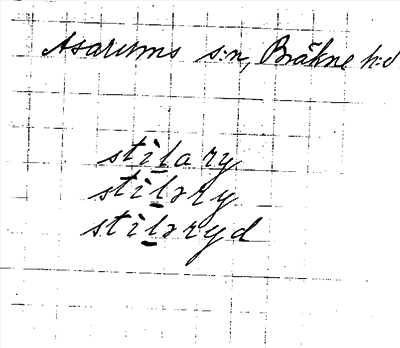 Asarums s:n, Bräkne h:d
sti̲l̲a ry
sti̲l̲ɘry
sti̲l̲ɘryd